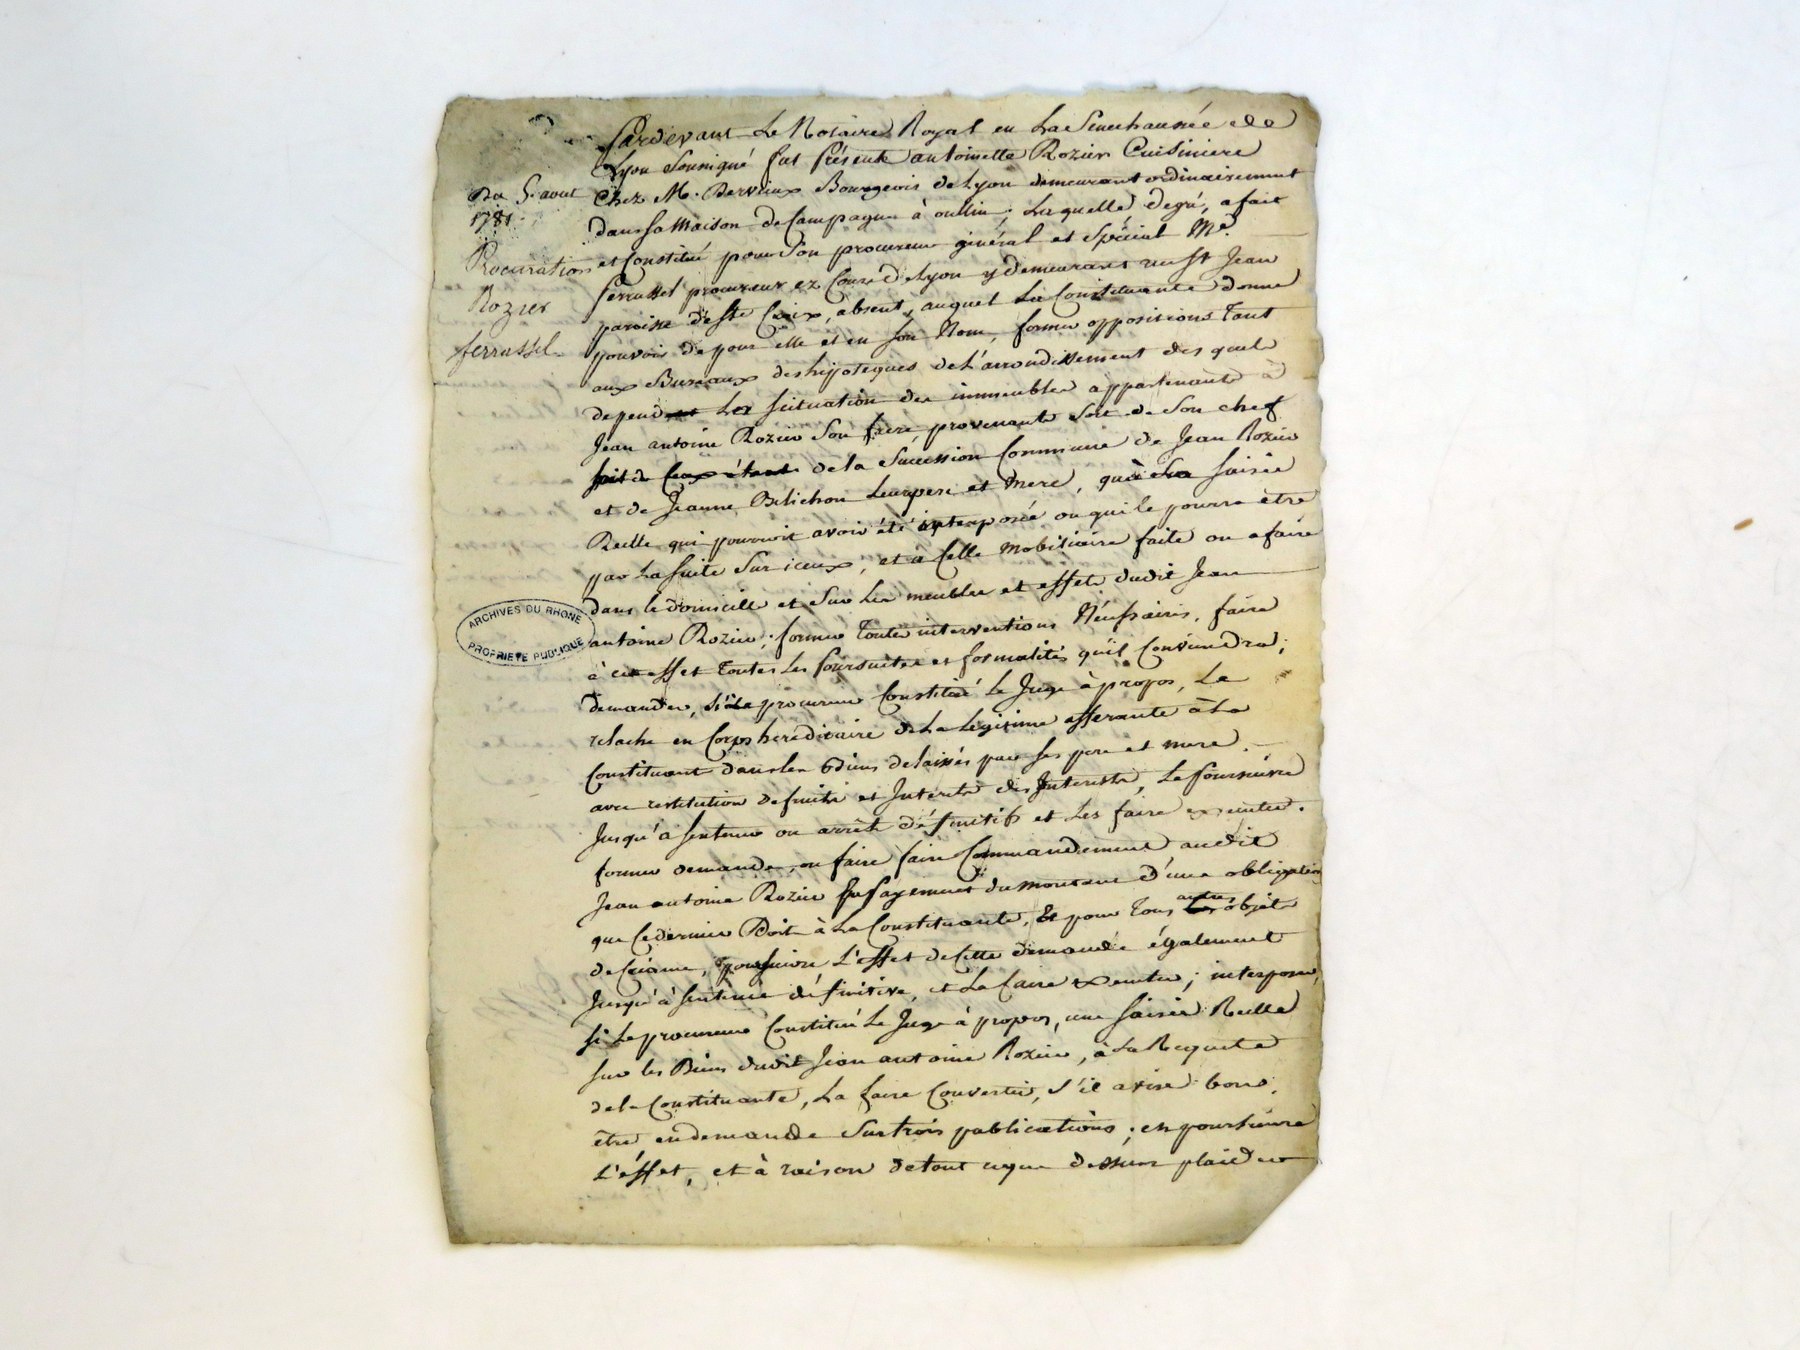 Pardevant Le Notaire Royal en La Senechaussée de
Lyon Soussigné fut présente antoinette Rozier Cuisiniere
Chez M. Dervieux Bourgeois de Lyon demeurant ordinairement
dans sa Maison de Campagne à oullin, Laquelle degré, a fait
et Constitué pour Son procureur général et Spécial Me.
ferrussel procureur ez Cour de Lyon y demeurant rue St Jean
paroisse de Ste Croix, absent, auquel La Constituante donne
pouvoir de pour elle et en son Nom, former oppositions Tant
aux Bureaux des hipoteques de L'arrondissement des quels
depend La scituation des immeubles appartenants à
Jean antoine Rozier Son frere, provenants Soit de Son chef
soit de Ceux étant de la Sucession Commune de Jean Rozier
et de Jeanne Bilichon Leurs pere et Mere, qu'à La saisie
Réélle qui pourroit avoir été interposée ou qui le pourra être
par La suite Sur iceux, et à Celle Mobiliaire faite ou a faire
dans le domicille et Sur Les meubles et effets dudit Jean
antoine Rozier; former Toutes interventions Nécessaires, faire
à cet effet Toutes Les Poursuites et formalités qu'il Conviendra;
demander, si Le procureur Constitué Le Juge à propos, Le
relache en Corps heréditaire de La Légitime afferante à La
Constituant dans les Biens delaissés par ses pere et mere
avec restitution de fruits et Interets des Interests, Le Poursuivre
Jusqu'à sentence ou arrêts définitifs et Les faire executer.
former demande, ou faire faire Commandement audit
Jean antoine Rozier En Payement du montant d'une obligation
que Ce dernier Doit à La Constituante, Et pour Tous autres objets
de Créance, poursuivre L'effet de Cette demande également
Jusqu'à sentence définitive, et La faire executer; interposer,
si Le procureur Constitué Le Juge à propos, une saisie Réelle
sur les Biens dudit Jean antoine Rozier, à La Requete
de la Constituante, La faire Convertir, s'il avise bon
être en demande Sur trois publications; en poursuivre
L'effet, et à raison de tout ce que dessus plaider
Du 5. aout
1781.
Procuration
Rozier
ferrussel
ARCHIVES DU RHONE
PROPRIETE PUBLIQUE